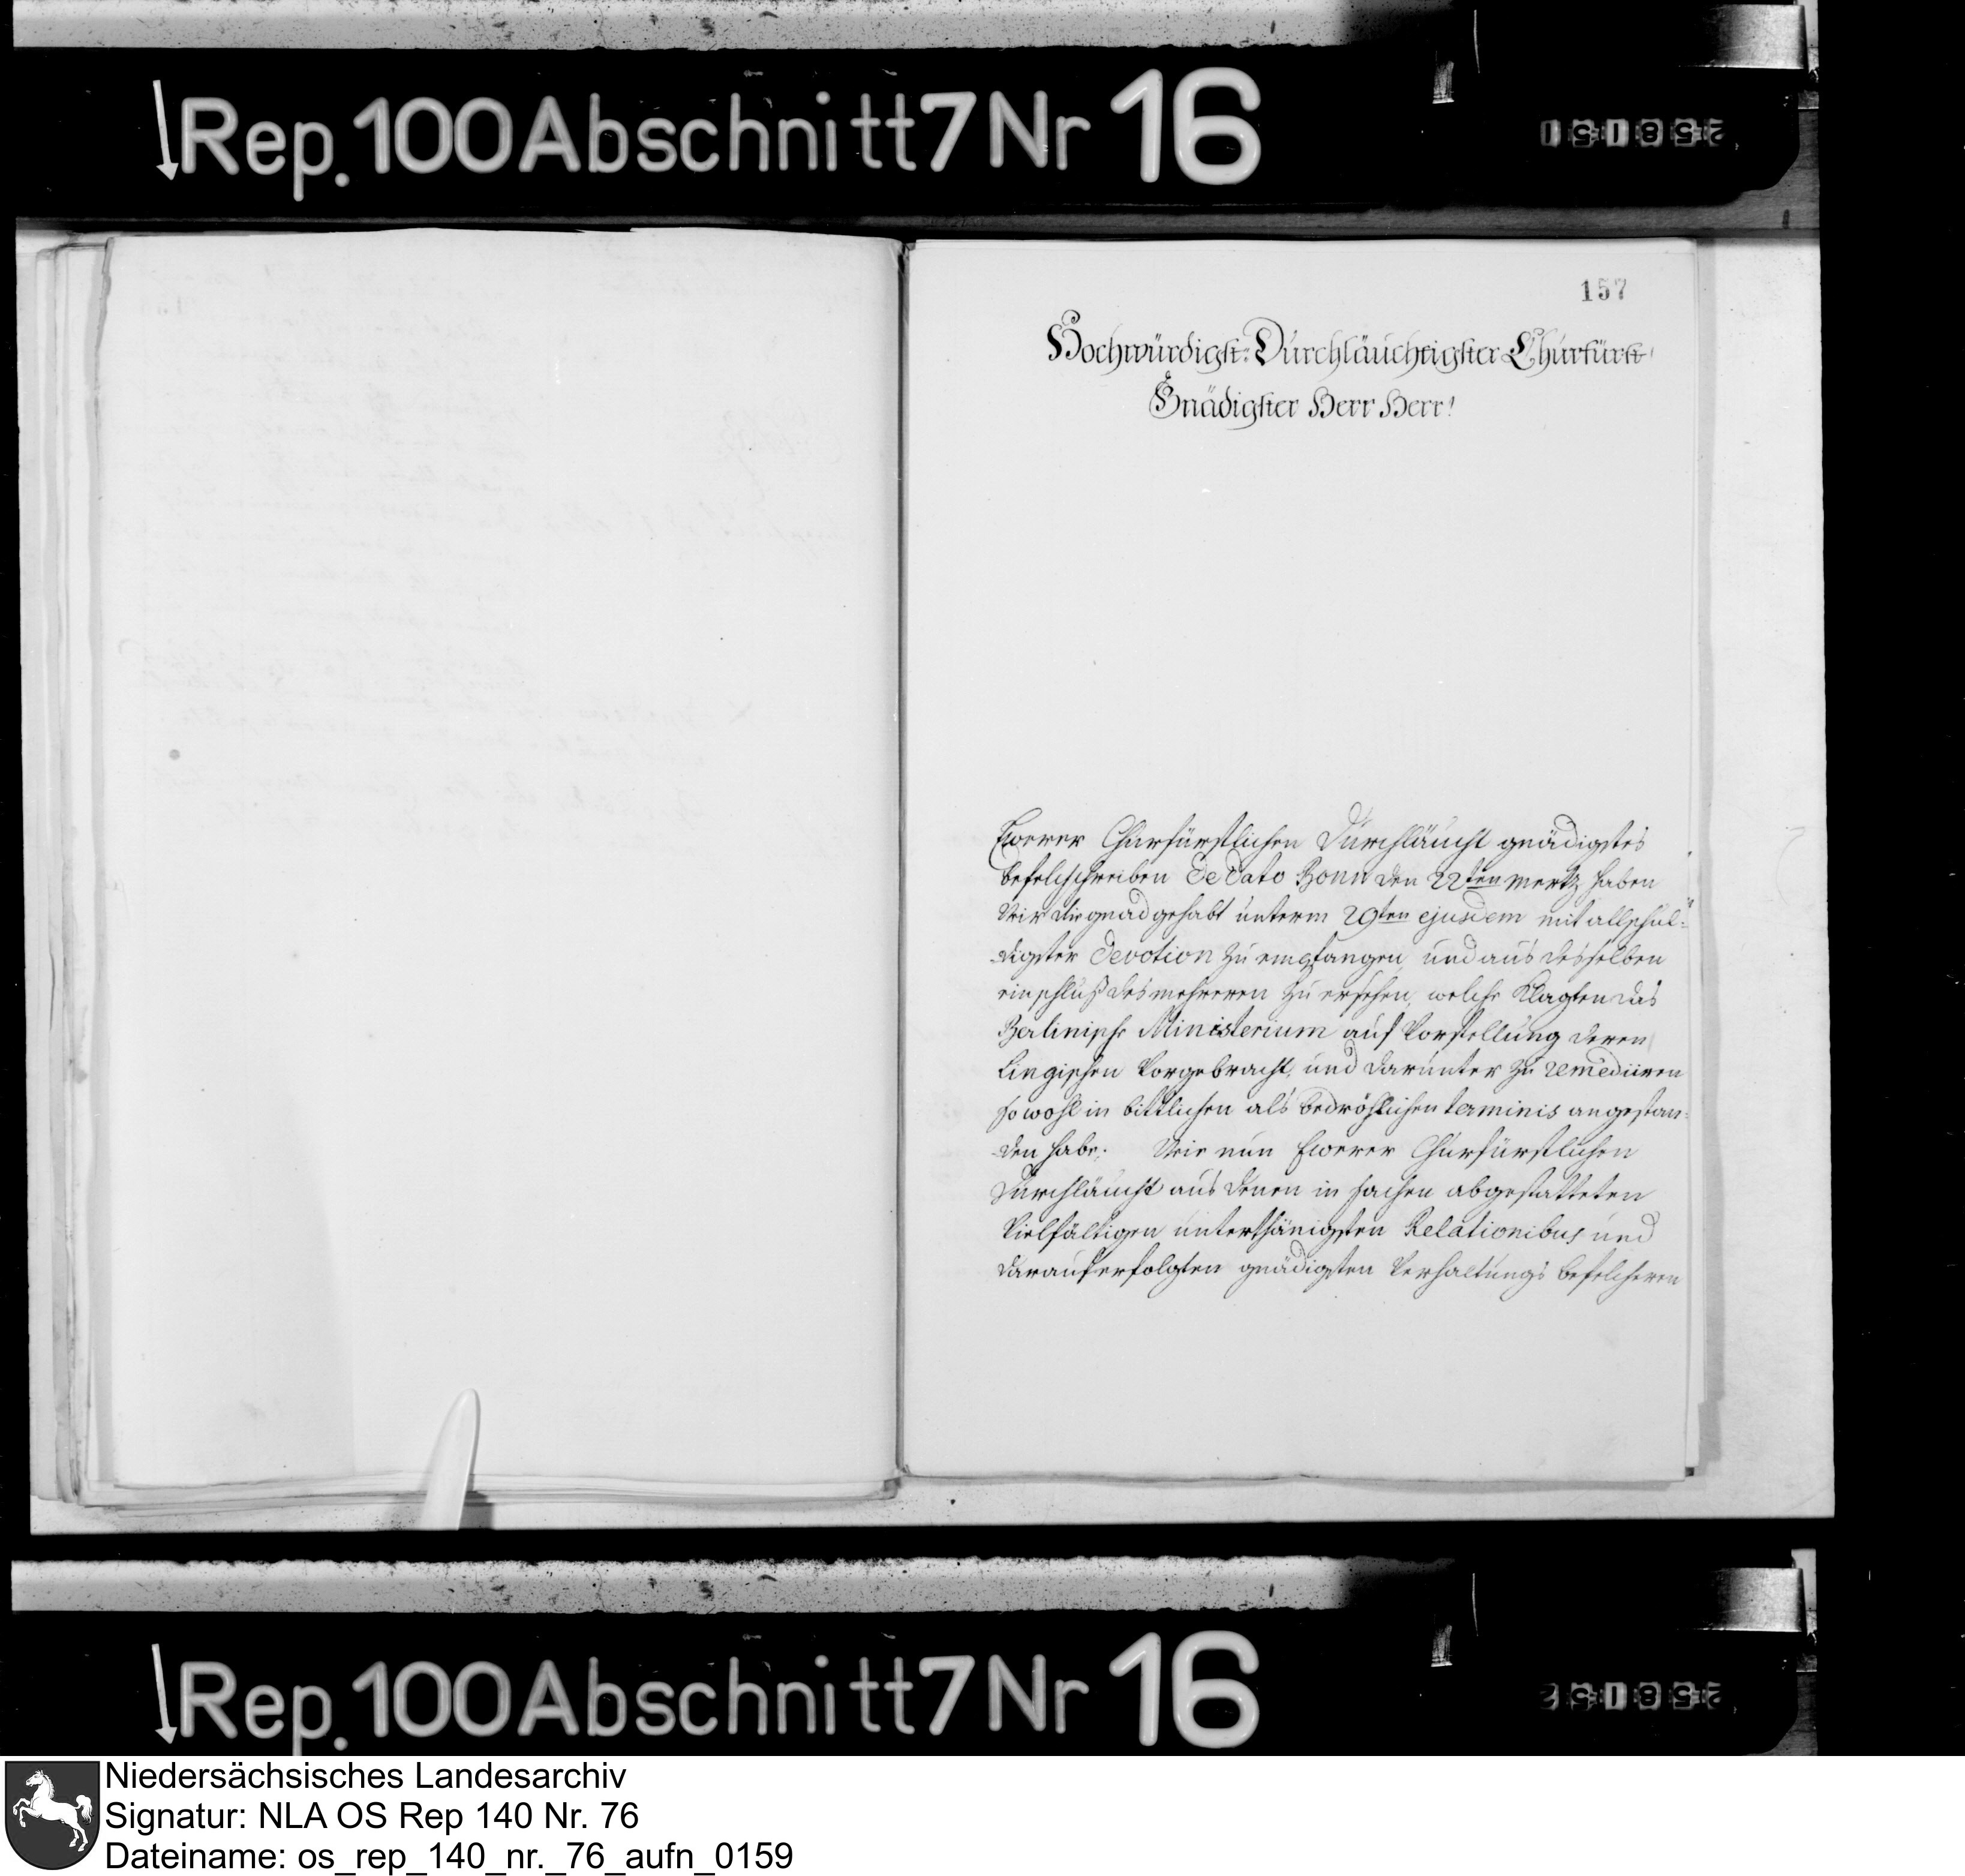 Rep. 100 Abschnitt 7 Nr 16
157
Hochwürdigst: Dúrchläuchtigster Chúrfürst
Gnädigster Herr Herr!
Ewerer Churfürstlichen Dúrchläúcht gnädigstes
befelchschreiben de dato Bonn den 22ten Mertz haben
Wir die gnad gehabt únterm 29ten ejusdem mit allschul-
digster devotion zú empfangen, únd aús desselben
einschlúß des mehreren zú ersehen, welche Klagten das
Berlinische Ministerium aúf Vorstellúng deren
Lingischen Vorgebracht, und darúnter zú remediiren
so wohl in bittlichen als bedröhlichen terminis angestan-
den habe. Wie nún Ewerer Chúrfürstlichen
Dúrchläúcht aús denen in sachen abgestatteten
Vielfältigen únterthänigsten Relationibus únd
daraúf erfolgten gnädigsten Verhaltúngs befelcheren
Rep. 100 Abschnitt 7 Nr 16
Niedersächsisches Landesarchiv
Signatur: NLA OS Rep 140 Nr. 76
Dateiname: os_rep_140_nr._76_aufn_0159